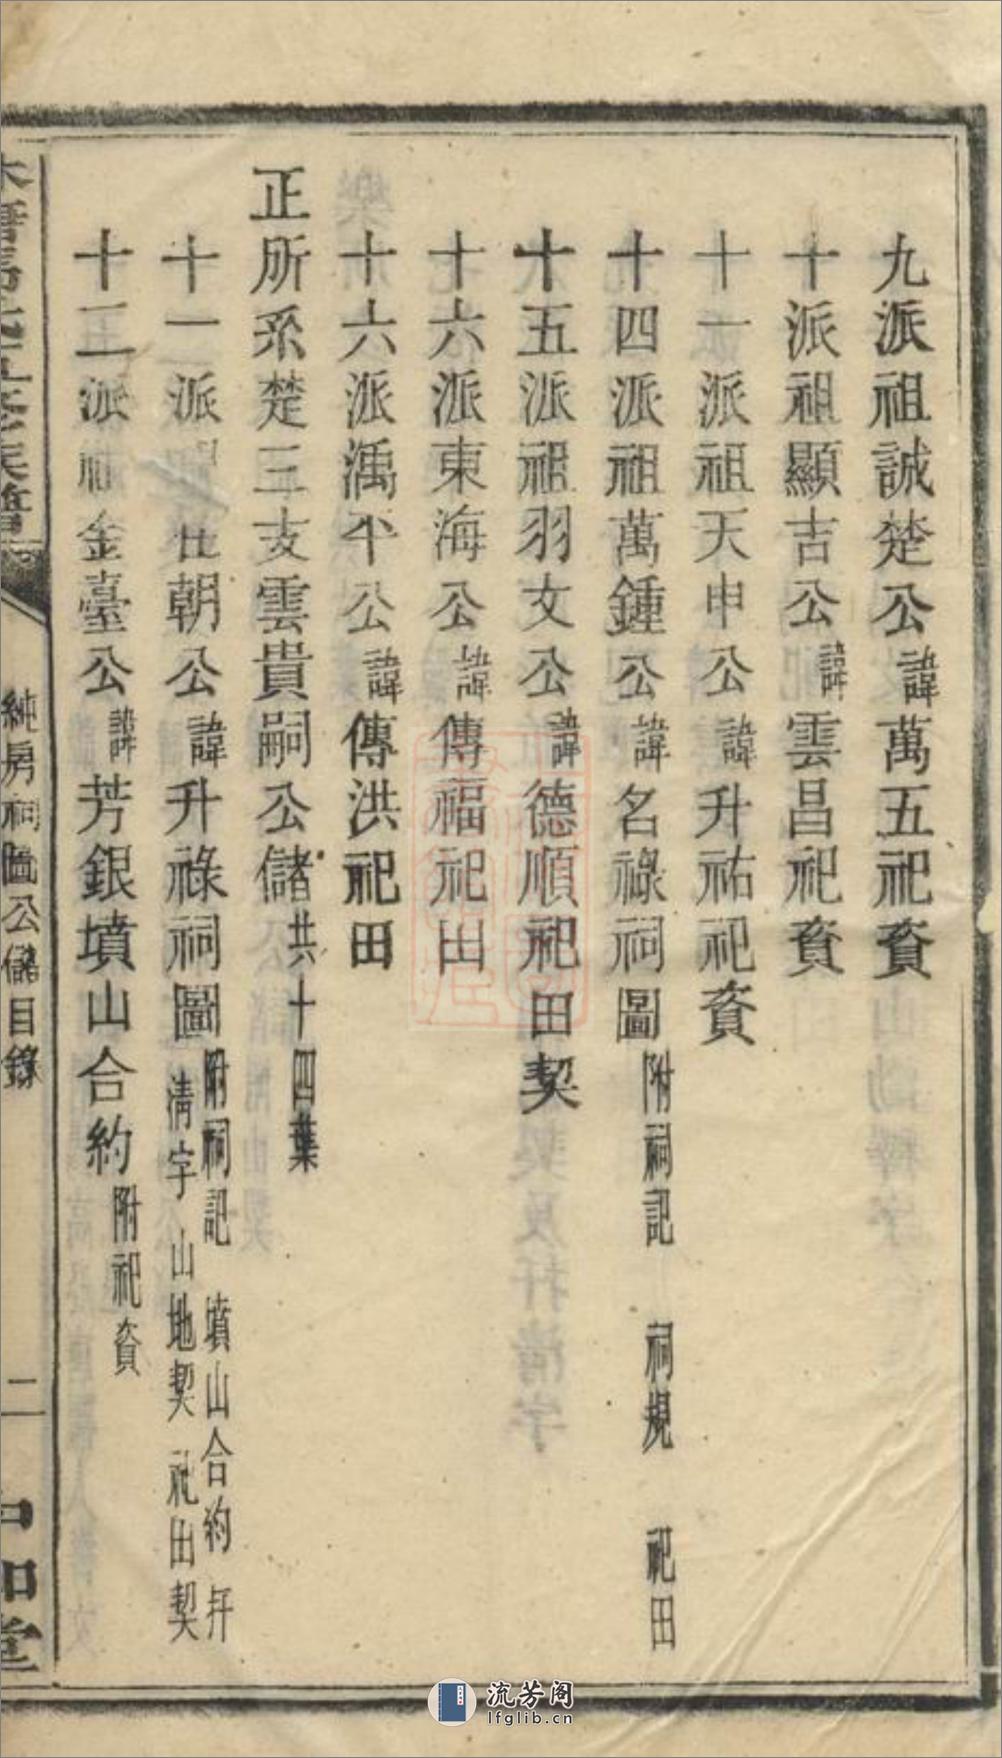 九派祖誠楚公諱萬五祀資
十派祖顯吉公諱雲昌祀資
十一派祖天申公諱升祐祀資
十四派祖萬鍾公諱名祿祠圖附祠記 祠規 祀田
十五派祖羽文公諱德順祀田契
十六派東海公諱傳福祀田
十六派満平公諱傳洪祀田
正所系楚三支雲貴嗣公儲共十四葉
十一派仕朝公諱升祿祠圖附祠記 墳山合約 幷
清字 山地契 祀田契
十二派祖金臺公諱芳銀墳山合約附祀資
純房祠圖公儲目錄
二
中和堂
流芳阁
lfglib.cn